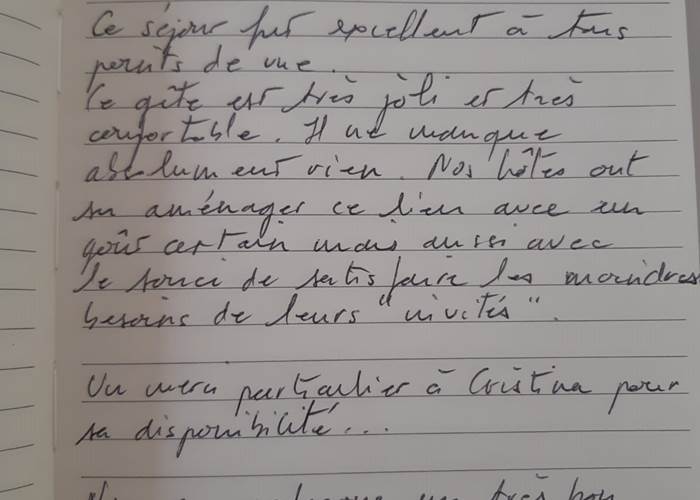 Ce séjour fut excellent à tous
points de vue.
Le gîte est très joli et très
confortable. Il ne manque
absolument rien. Nos hôtes ont
su aménager ce lieu avec un
goût certain mais aussi avec
le souci de satisfaire les moindres
besoins de leurs "invités".
Un merci particulier à Cristina pour
sa disponibilité...
un très bon